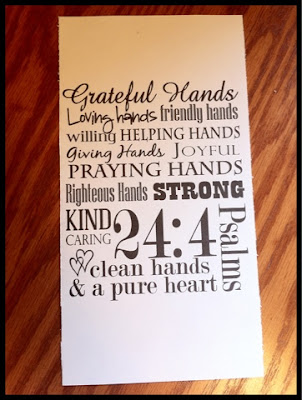 Grateful Hands
Loving hands friendly hands
willing HELPING HANDS
Giving Hands JOYFUL
PRAYING HANDS
Righteous Hands STRONG
KIND
CARING
24:4
Psalms
clean hands
& a pure heart